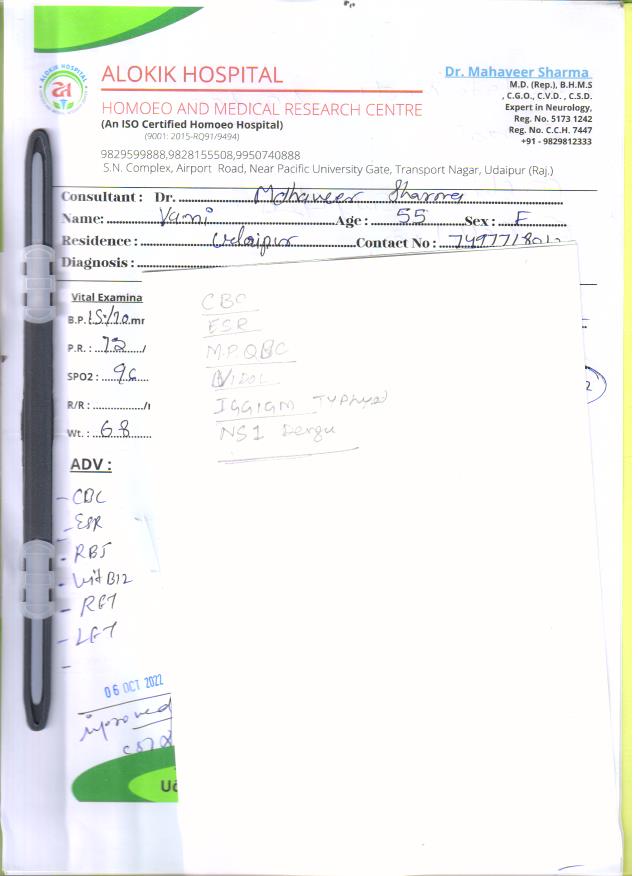 ALOKIK HOSPITAL
ALOKIK HOSPITAL
HOMOEO AND MEDICAL RESEARCH CENTRE
(An ISO Certified Homoeo Hospital)
(9001: 2015-RQ91/9494)
9829599888,9828155508,9950740888
S.N. Complex, Airport Road, Near Pacific University Gate, Transport Nagar, Udaipur (Raj.)
Dr. Mahaveer Sharma
M.D. (Rep.), B.H.M.S
, C.G.O., C.V.D. , C.S.D.
Expert in Neurology,
Reg. No. 5173 1242
Reg. No. C.C.H. 7447
+91 - 9829812333
Consultant : Dr. Mahaveer Sharma
Name: Age : 55 Sex : F
Residence : Udaipur Contact No :
Diagnosis :
Vital Examina
B.P. mr
P.R. : 72 /
SPO2 : 96
R/R : /
Wt. : 68
ADV :
- CBC
- ESR
- RBS
- Vit B12
- RFT
- LFT
-
06 OCT 2022
improved
CBC
ESR
M.P QBC
WIDOL
IGGIGM Typhy
NS1 Dengu